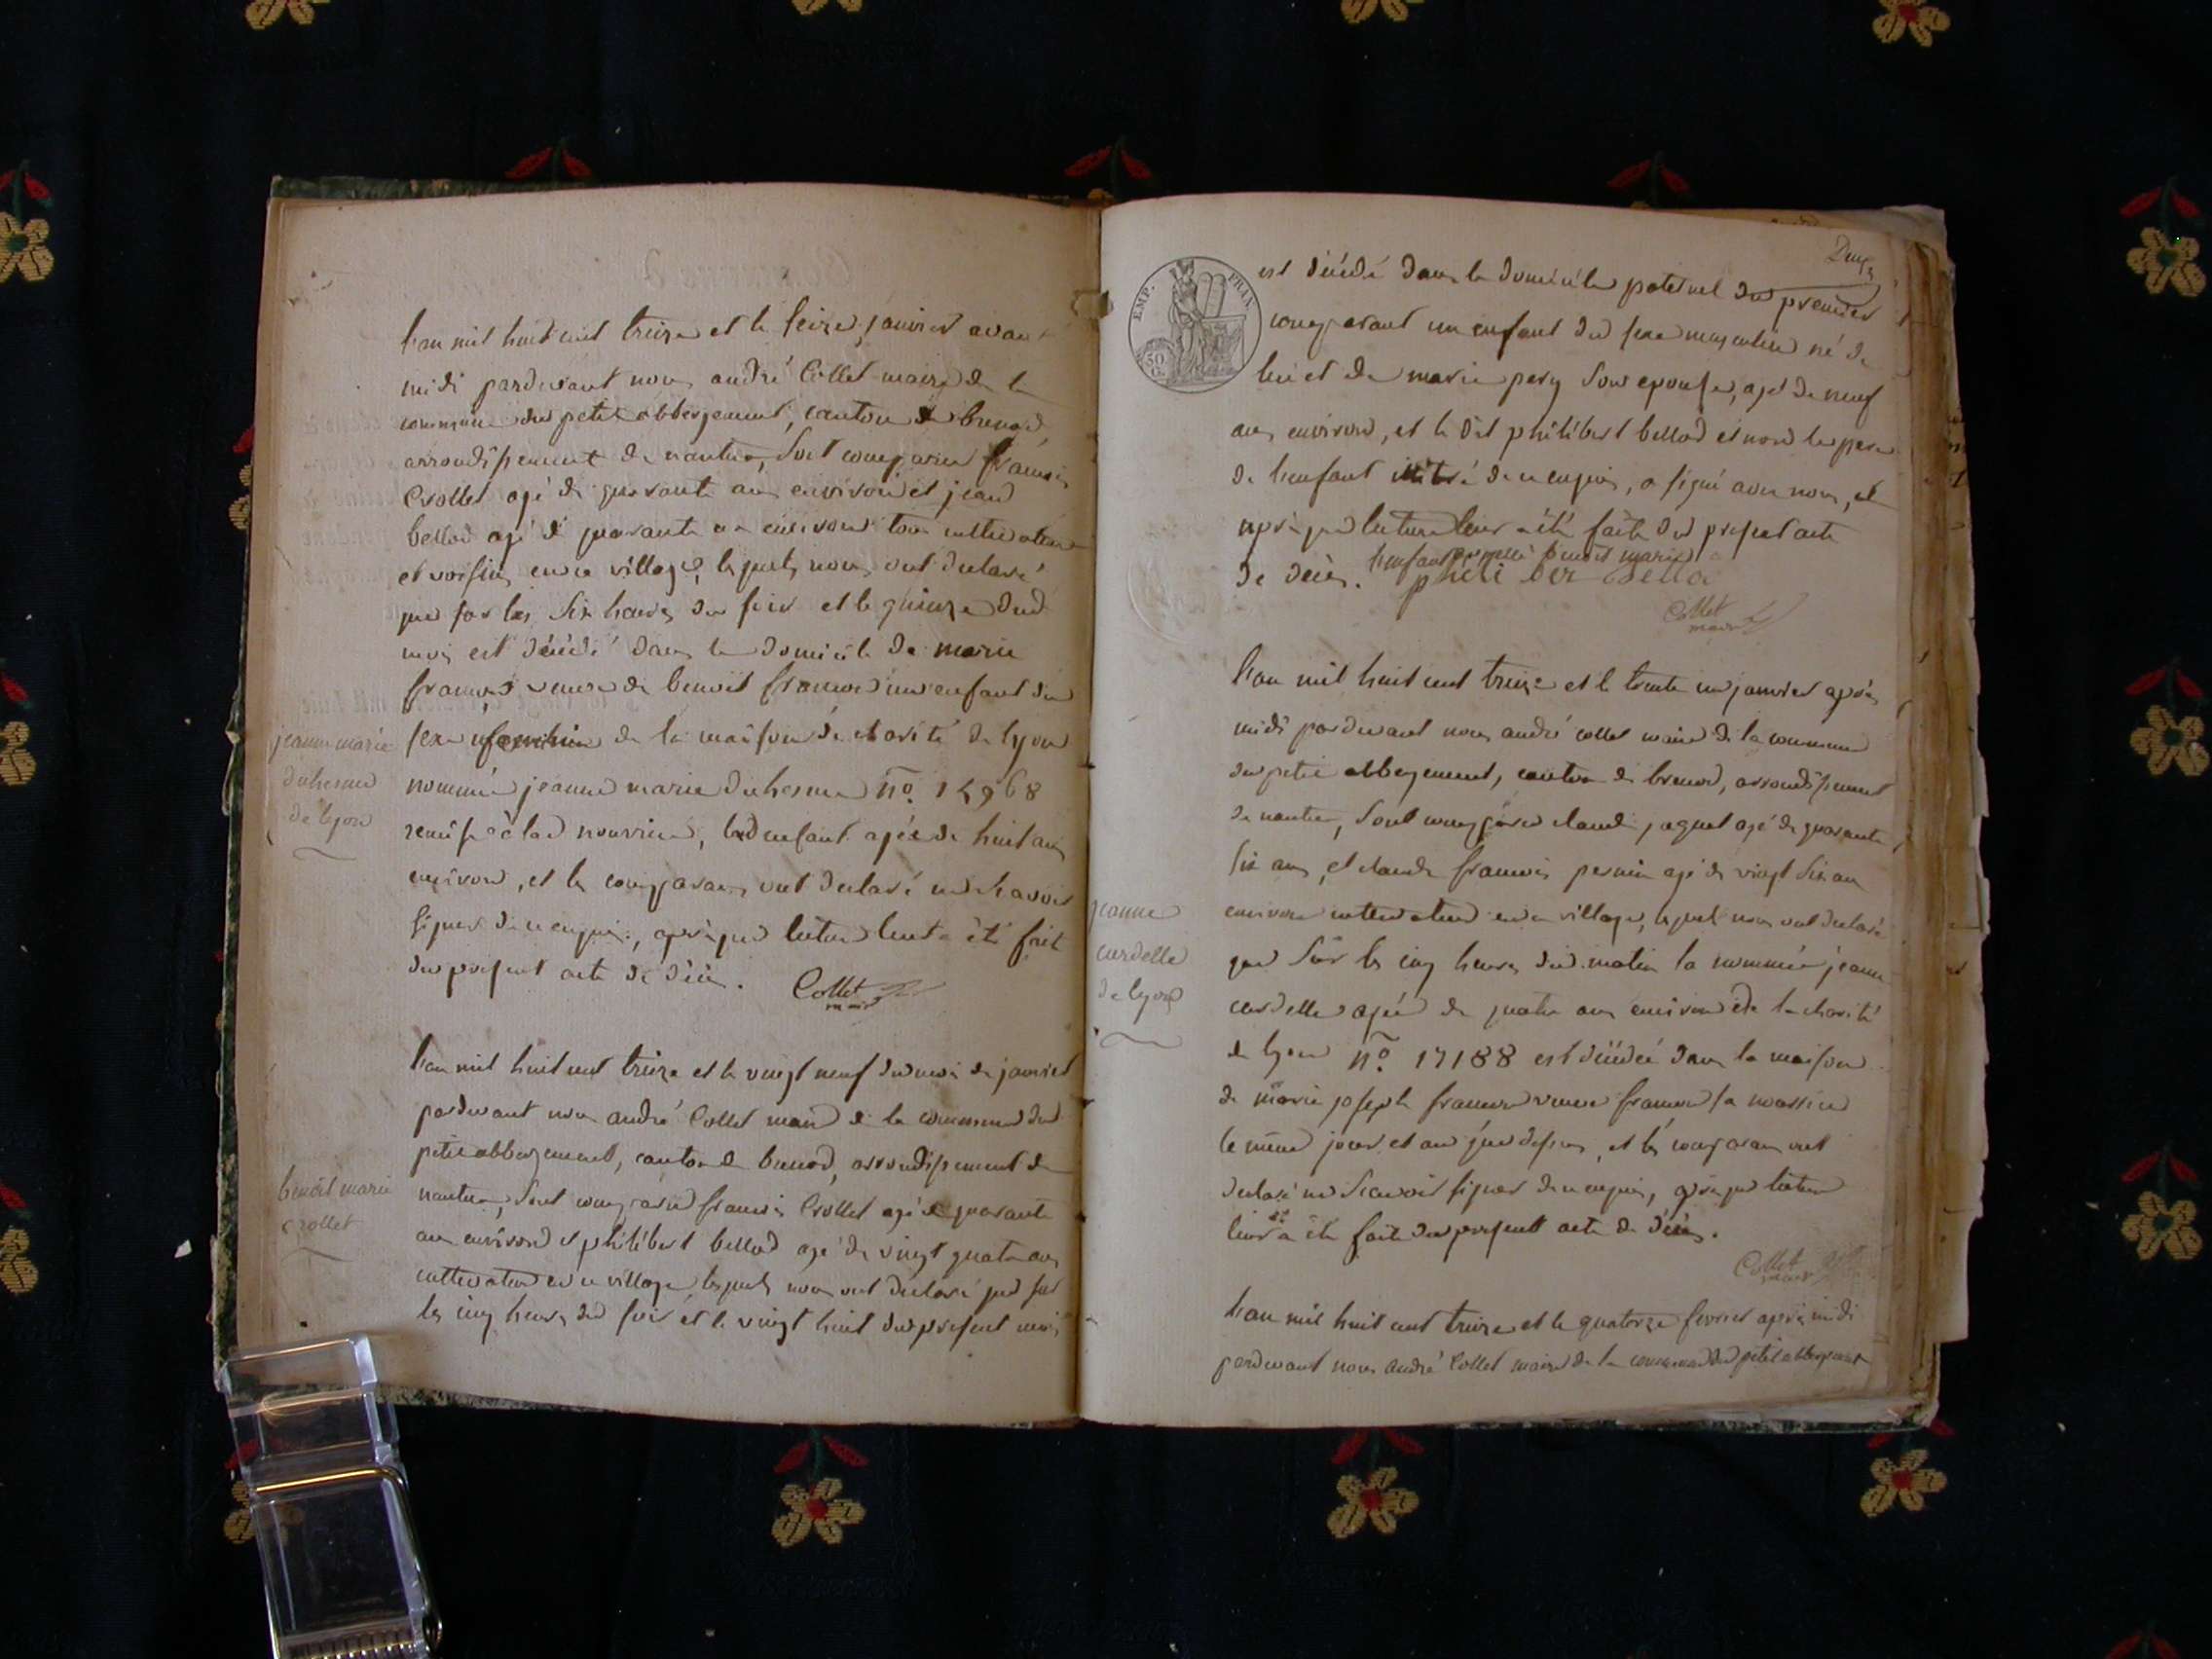 l'an mil huit cent treize et le seize janvier avant
midi pardevant nous andré Collet maire de la
commune du petit abbergement, canton de brenod,
arrondissement de nantua, sont comparu françois
Crollet agé de quarante ans environ et jean
bellod agé de quarante ans environ tous cultivateurs
et voisins en ce village, lesquels nous ont declaré
que sur les six heures du soir et le quinze dud
mois est décédé dans le domicile de marie
françois veuve de benoit un enfant du
jeanne marie
duhesme
de lyon
sexe feminin de la maison de charité de lyon
nommée jeanne marie duhesme no. 14968
remise à lad nourrice, led enfant agée de huit ans
environ, et les comparans ont declaré ne scavoir
signer de ce enquis, après que lecture leur a été fait
du present acte de décès. Collet
maire
l'an mil huit cent treize et le vingt neuf du mois de janvier
pardevant nous andré Collet maire de la commune du
petit abbergement, canton de brenod, arrondissement de
benoit marie
crollet
nantua, sont comparu françois Crollet agé de quarante
ans environ et philibert bellod agé de vingt quatre ans
cultivateur en ce village lesquels nous ont declaré que sur
les cinq heures du soir et le vingt huit du present mois
Deux
EMP. FRAN.
50 C.
est décédé dans le domicile paternel du premier
comparant un enfant du sexe masculin né de
lui et de marie pery son epouse, agé de neuf
ans environ, et le dit philibert bellod et non le pere
de l'enfant de ce enquis, a signé avec nous, et
après que lecture leur a été faite du present acte
l'enfant appellé benoit marie
de décès. phili ber bellod
Collet
maire
l'an mil huit cent treize et le trente un janvier après
midi pardevant nous andré collet maire de la commune
du petit abbergement, canton de brenod, arrondissement
de nantua, sont comparu claude jaquet agé de quarante
six ans, et claude françois pernin agé de vingt six ans
jeanne
curdelle
de lyon
environ cultivateur en ce village, lesquels nous ont declaré
que sur les cinq heures du matin la nommée jeanne
curdelle agée de quatre ans environ de la charité
de lyon no. 17188 est décédée dans la maison
de marie joseph veuve sa nourrice
le même jour et an que dessus, et les comparans ont
declaré ne scavoir signer de ce enquis, après que lecture
leur a été faite du present acte de décès.
Collet
maire
l'an mil huit cent treize et le quatorze fevrier après midi
pardevant nous andré Collet maire de la commune du petit abbergement